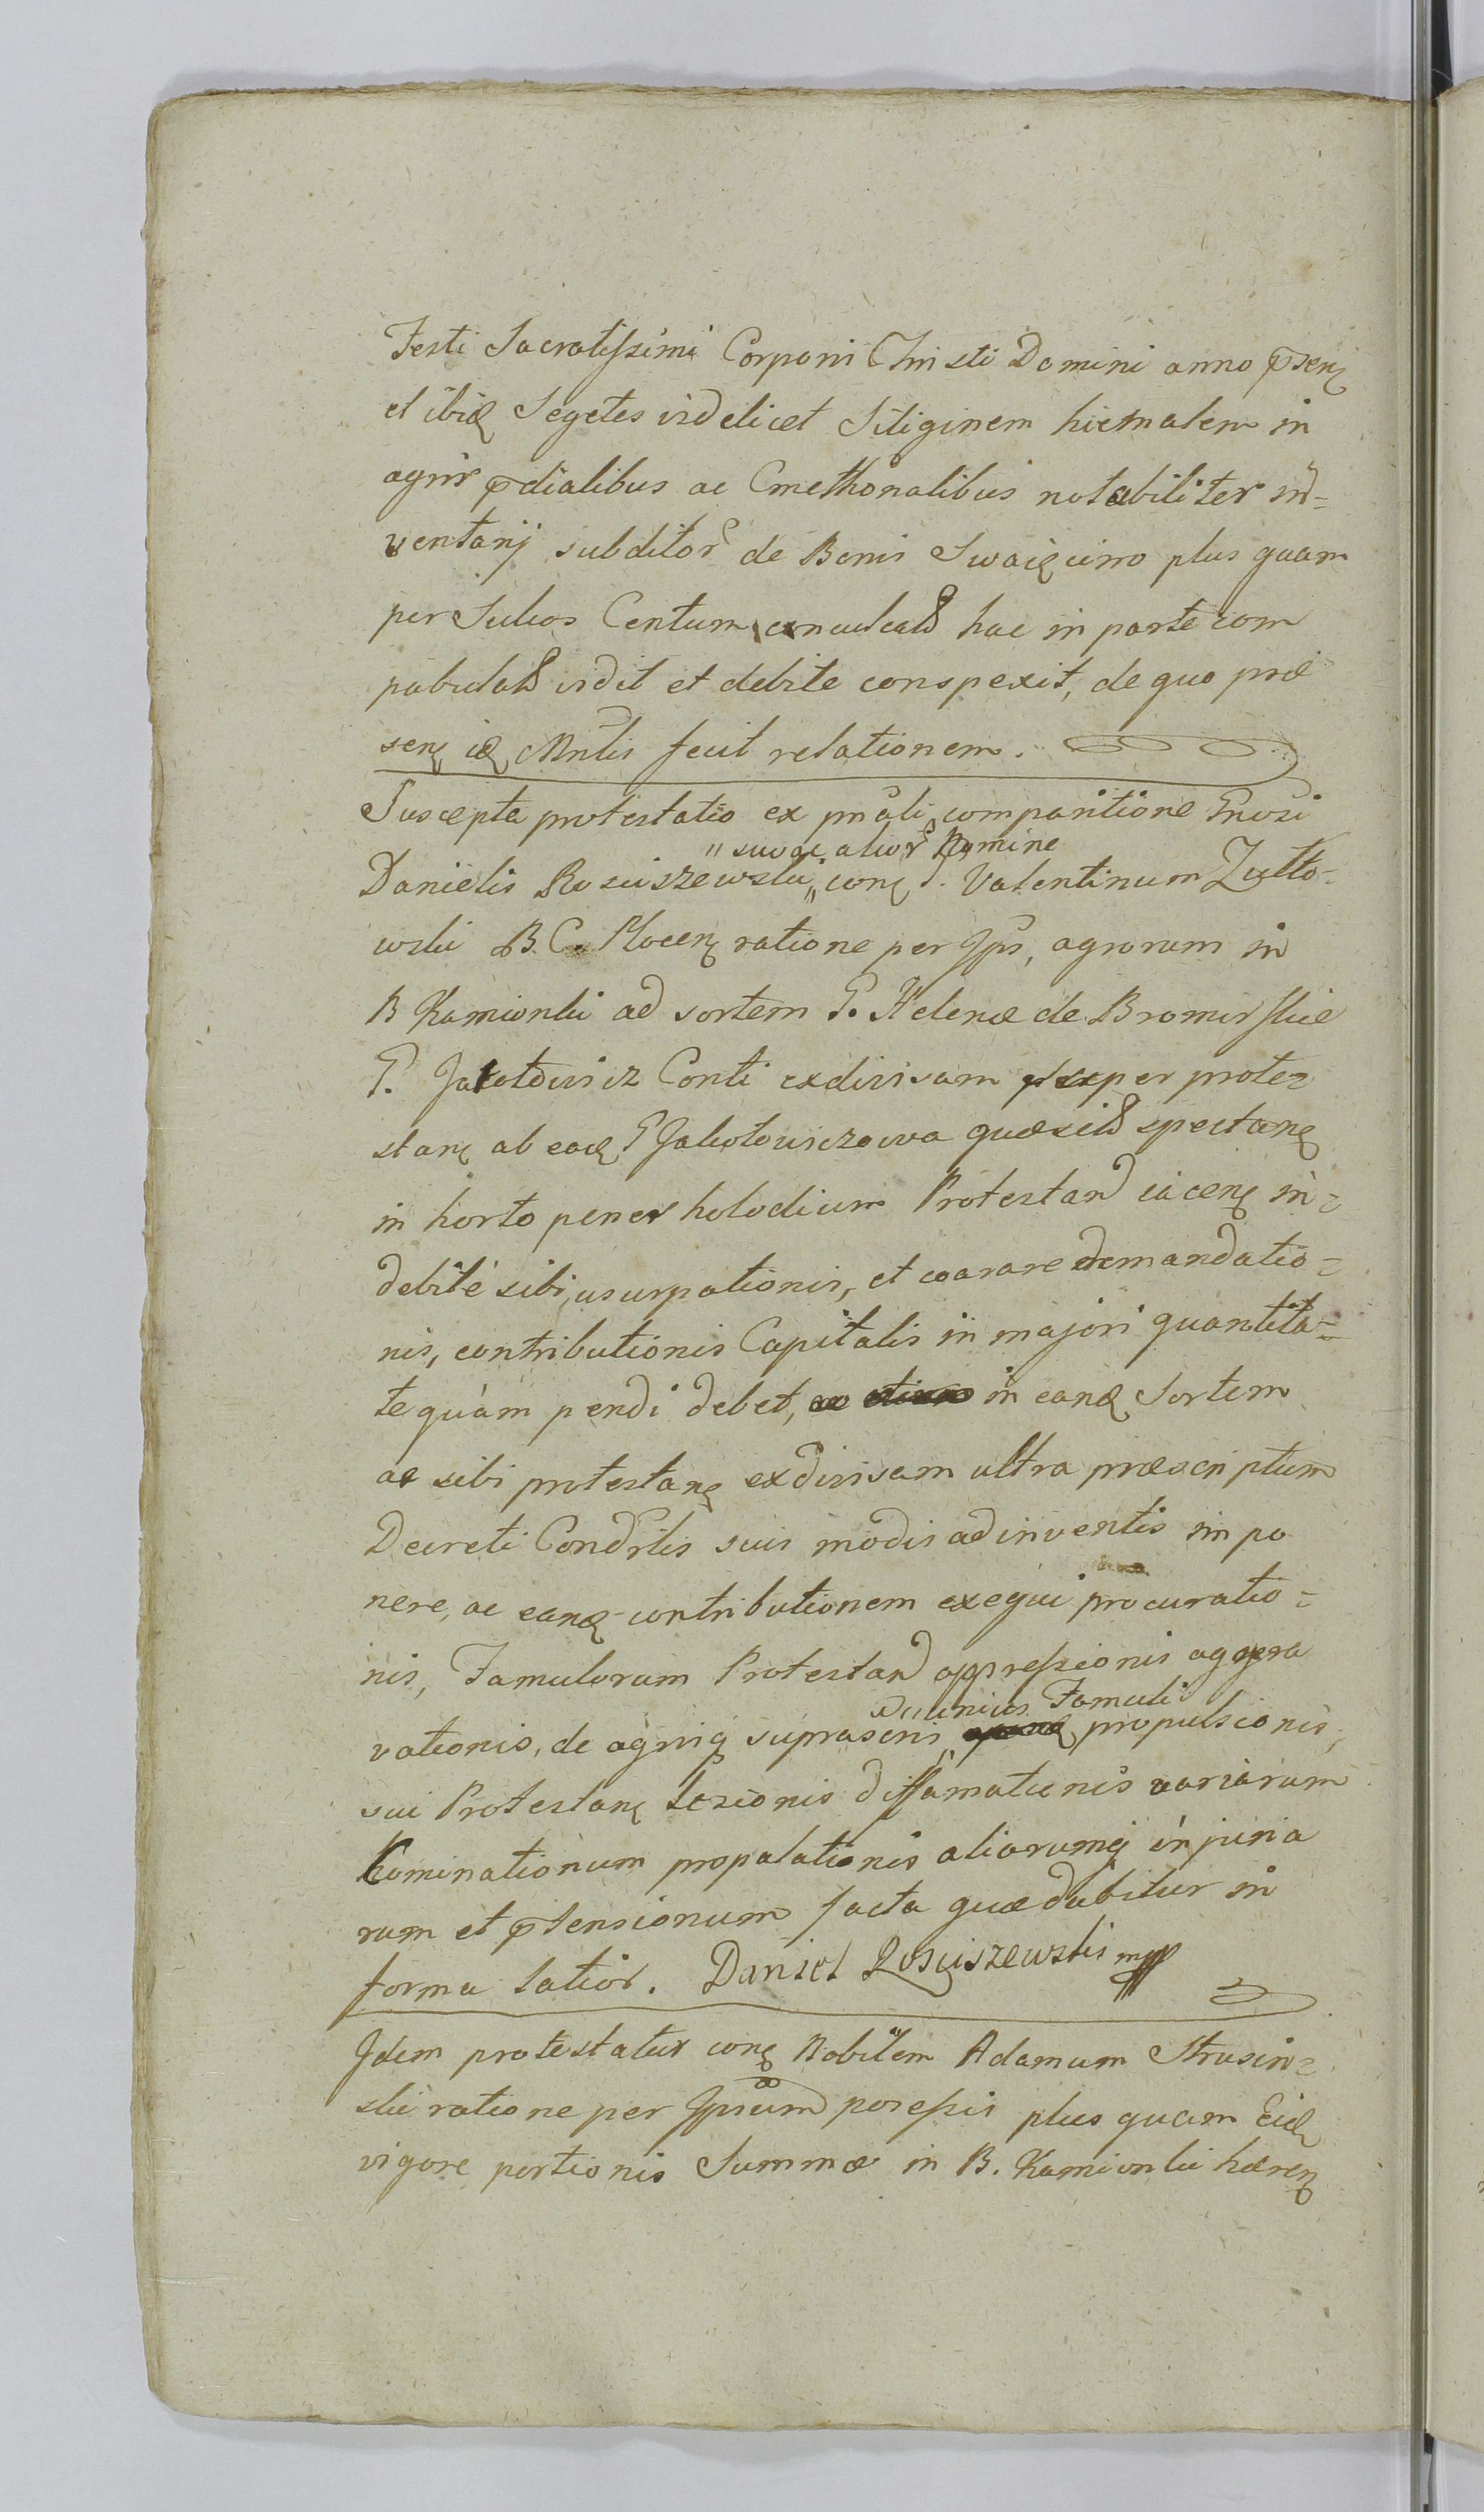 Festi Sacratissimi Corporis Christi Domini anno psen
et ibid Segetes videlicet Siliginem hiemalem in
agris pdialibus ac Cmethonalibus notabiliter in=
ventarij subditor de Bonis Swaięcino plus quam
per Sulcos Centum conculcatas hac in parte com
pabulatas vidit et debite conspexit, de quo præ
sen id Mntlis fecit relationem.
Suscepta protestatio ex pnali comparitione Gnosi
"suo ac alior Nomine
Danielis Rosciszewski, con G. Valentinum Zółto-
wski B.C. Plocen ratione per Ips, agrorum in
B Kamionki ad sortem G. Helenæ de Bromirskie
G. Jakotowicz Conti exdivisam per protes
stan ab ead G Jakotowiczowa quæsitas spectan
in horto penes holodium Protestan iacen in=
debité sibi usurpationis, et coarare demandatio=
nis, contributionis Capitalis in majori quantita=
te quàm pendi debet, in eand Sortem
ac sibi protestan exdivisam ultra præscriptum
Decreti Condrlis suis modis adinventis impo
nere, ac eand contributionem exequi procuratio=
nis, Famulorum Protestan oppressionis aggra
vationis, de agrisq suprascris propulsionis,
unius Famuli
sui Protestan Læsionis diffamationis variarum
Cominationum propalationis aliorumq injuria
rum et ptensionum facta quæ dabitur in
forma latior. Daniel Rosciszewski mpp
Idem protestatur con Nobilem Adamum Strusin=
ski ratione per Ipsum posessis plus quam Eid
vigore portionis Summæ in B. Kamionki hæren